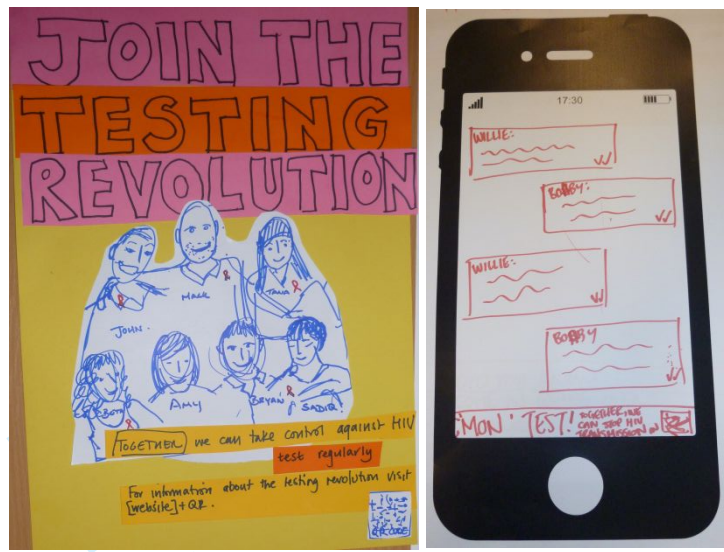 JOIN THE
TESTING
REVOLUTION
MARK
TANA
JOHN.
BETH
AMY
BRYAN
SADIQ.
TOGETHER we can take control against HIV
test regularly
For information about the testing revolution visit
[website] + QR.
QR CODE
17:30
WILLIE:
BOBBY:
WILLIE:
BOBBY
C'MON TEST! TOGETHER WE
CAN STOP HIV
TRANSMISSION